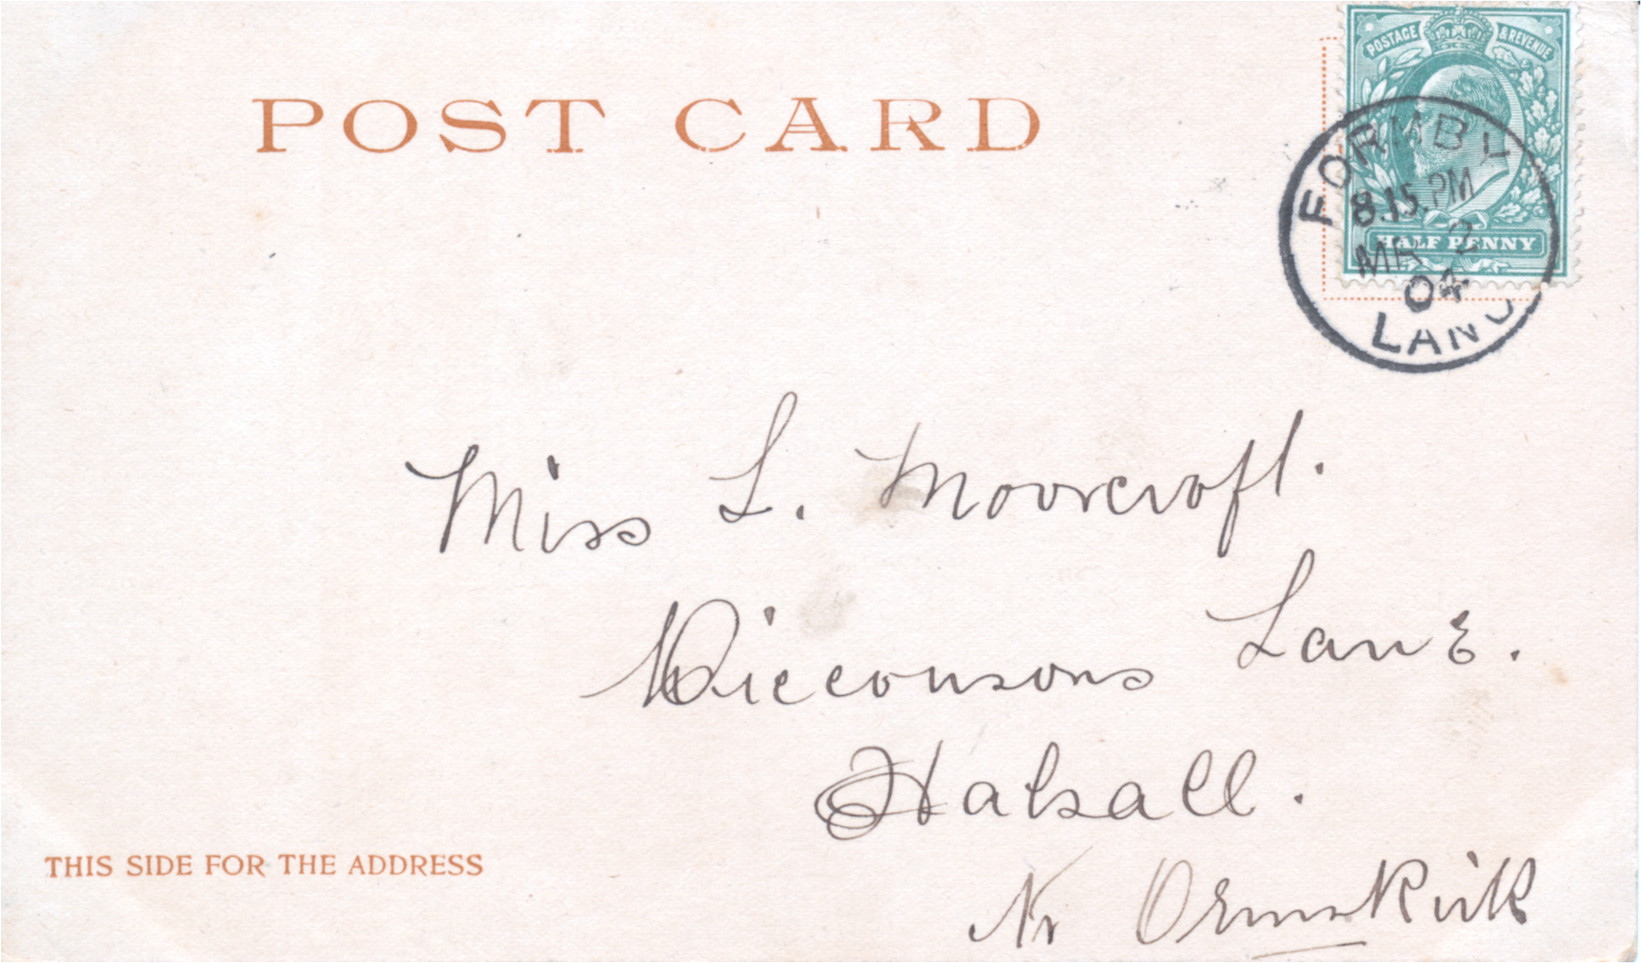 POST CARD
POSTAGE & REVENUE
HALF PENNY
FORMBY
8.15 PM
MR 2
04
LANC
Miss L. Moorcroft.
Wicconsons Lane.
Halsall.
Nr Ormskirk
THIS SIDE FOR THE ADDRESS